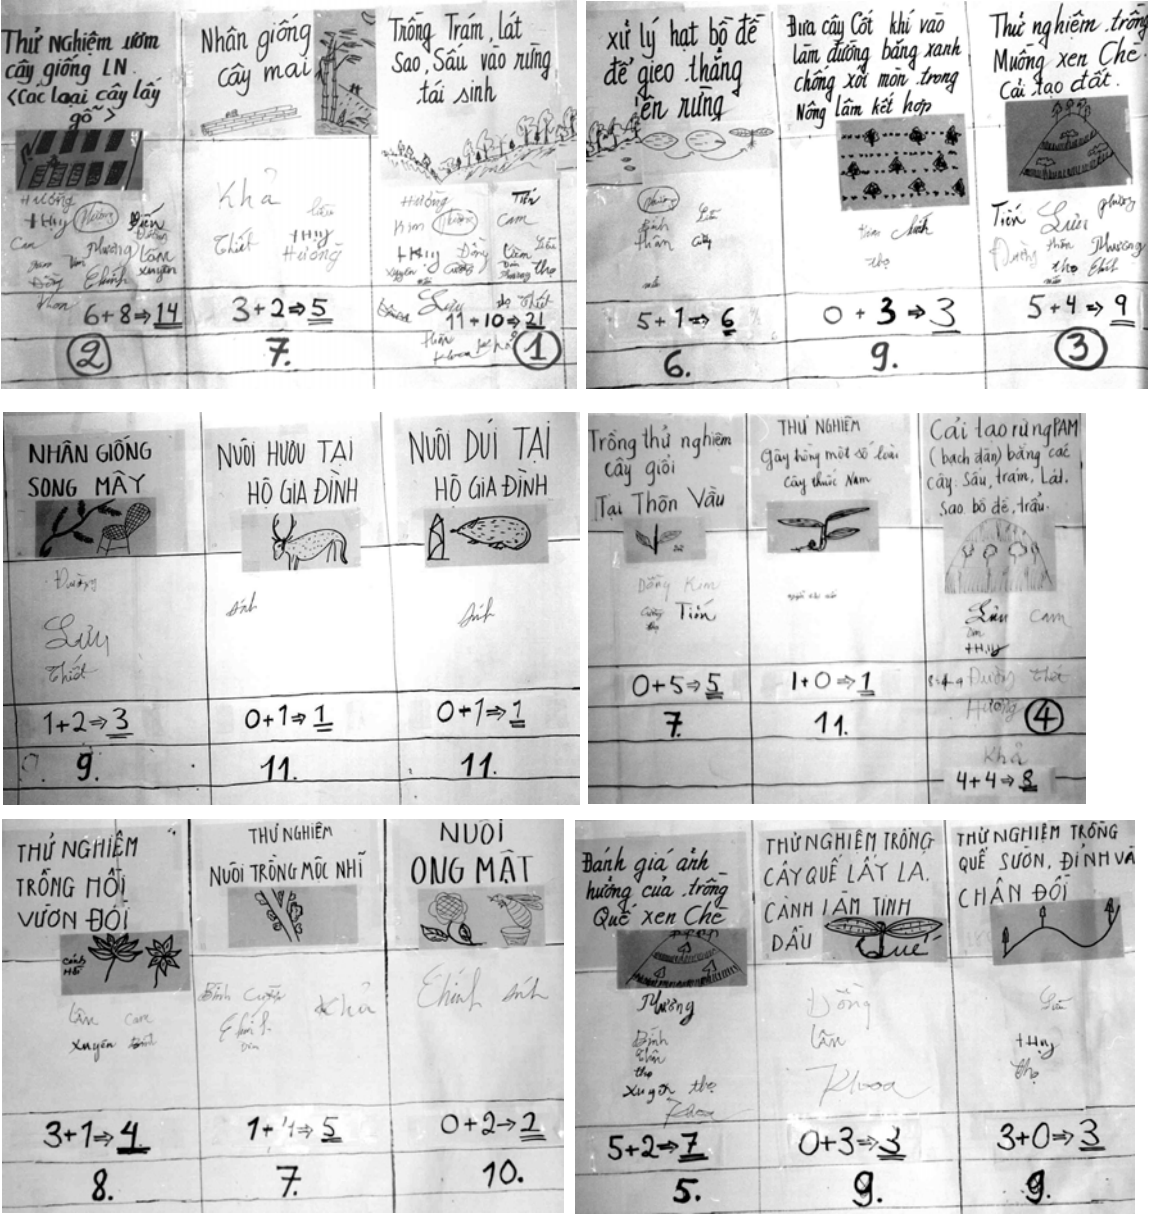 Thử Nghiệm ươm
cây giống LN
<Các loại cây lấy
gỗ>
Hường
Thuỷ
Phương
Lâm
Xuyên
Chính
Khoa
6+8⇒14
2
Nhân giống
cây mai
Khả
Liễu
Thiết
Thuỷ
Hường
3+2⇒5
7.
Trồng Trám, lát
Sao, Sấu vào rừng
tái sinh
Hường
Tiến
Kim
cam
Thuỷ
Đồng
thọ
Lưu
Thiết
11+10⇒21
thân
Khoa
Khả
1
xử lý hạt bồ đề
để gieo thẳng
lên rừng
Bính
Liễu
thân
Cường
5+1⇒6
6.
Đưa cây Cốt khí vào
làm đường băng xanh
chống xói mòn trong
Nông lâm kết hợp
thọ
0+3⇒3
9.
Thử nghiệm trồng
Muồng xen Chè
Cải tạo đất.
Tiến
Lưu
Phương
Đường
thân
Phương
thọ
5+4⇒9
3
NHÂN GIỐNG
SONG MÂY
Đường
Lưu
Thiết
1+2⇒3
9.
NUÔI HƯƠU TẠI
HỘ GIA ĐÌNH
0+1⇒1
11.
NUÔI DÚI TẠI
HỘ GIA ĐÌNH
0+1⇒1
11.
Trồng thử nghiệm
cây giổi
Tại Thôn Vầu
Đồng Kim
Cường
Tiến
thọ
0+5⇒5
7.
THỬ NGHIỆM
Gây trồng một số loài
cây thuốc Nam
1+0⇒1
11.
Cải tạo rừng PAM
(bạch đàn) bằng các
cây. Sấu, trám, Lát,
Sao bồ đề, trẩu.
Lưu
cam
Thuỷ
Đường
Hường
4
Khả
4+4⇒8
THỬ NGHIỆM
TRỒNG HỒI
VƯỜN ĐỒI
cánh
Hồi
Lân
cam
Xuyên
3+1⇒4
8.
THỬ NGHIỆM
NUÔI TRỒNG MỘC NHĨ
Bính
Khả
Chính
1+4⇒5
7.
NUÔI
ONG MẬT
Chính
0+2→2
10.
Đánh giá ảnh
hưởng của trồng
Quế xen Chè
Phương
Bính
thân
thọ
Xuyên thọ
Khoa
5+2⇒7
5.
THỬ NGHIỆM TRỒNG
CÂY QUẾ LẤY LÁ,
CÀNH LÀM TINH
DẦU
Quế
Đồng
Lân
Khoa
0+3⇒3
9.
THỬ NGHIỆM TRỒNG
QUẾ SƯỜN, ĐỈNH VÀ
CHÂN ĐỒI
Liễu
Thuỷ
thọ
3+0⇒3
9.